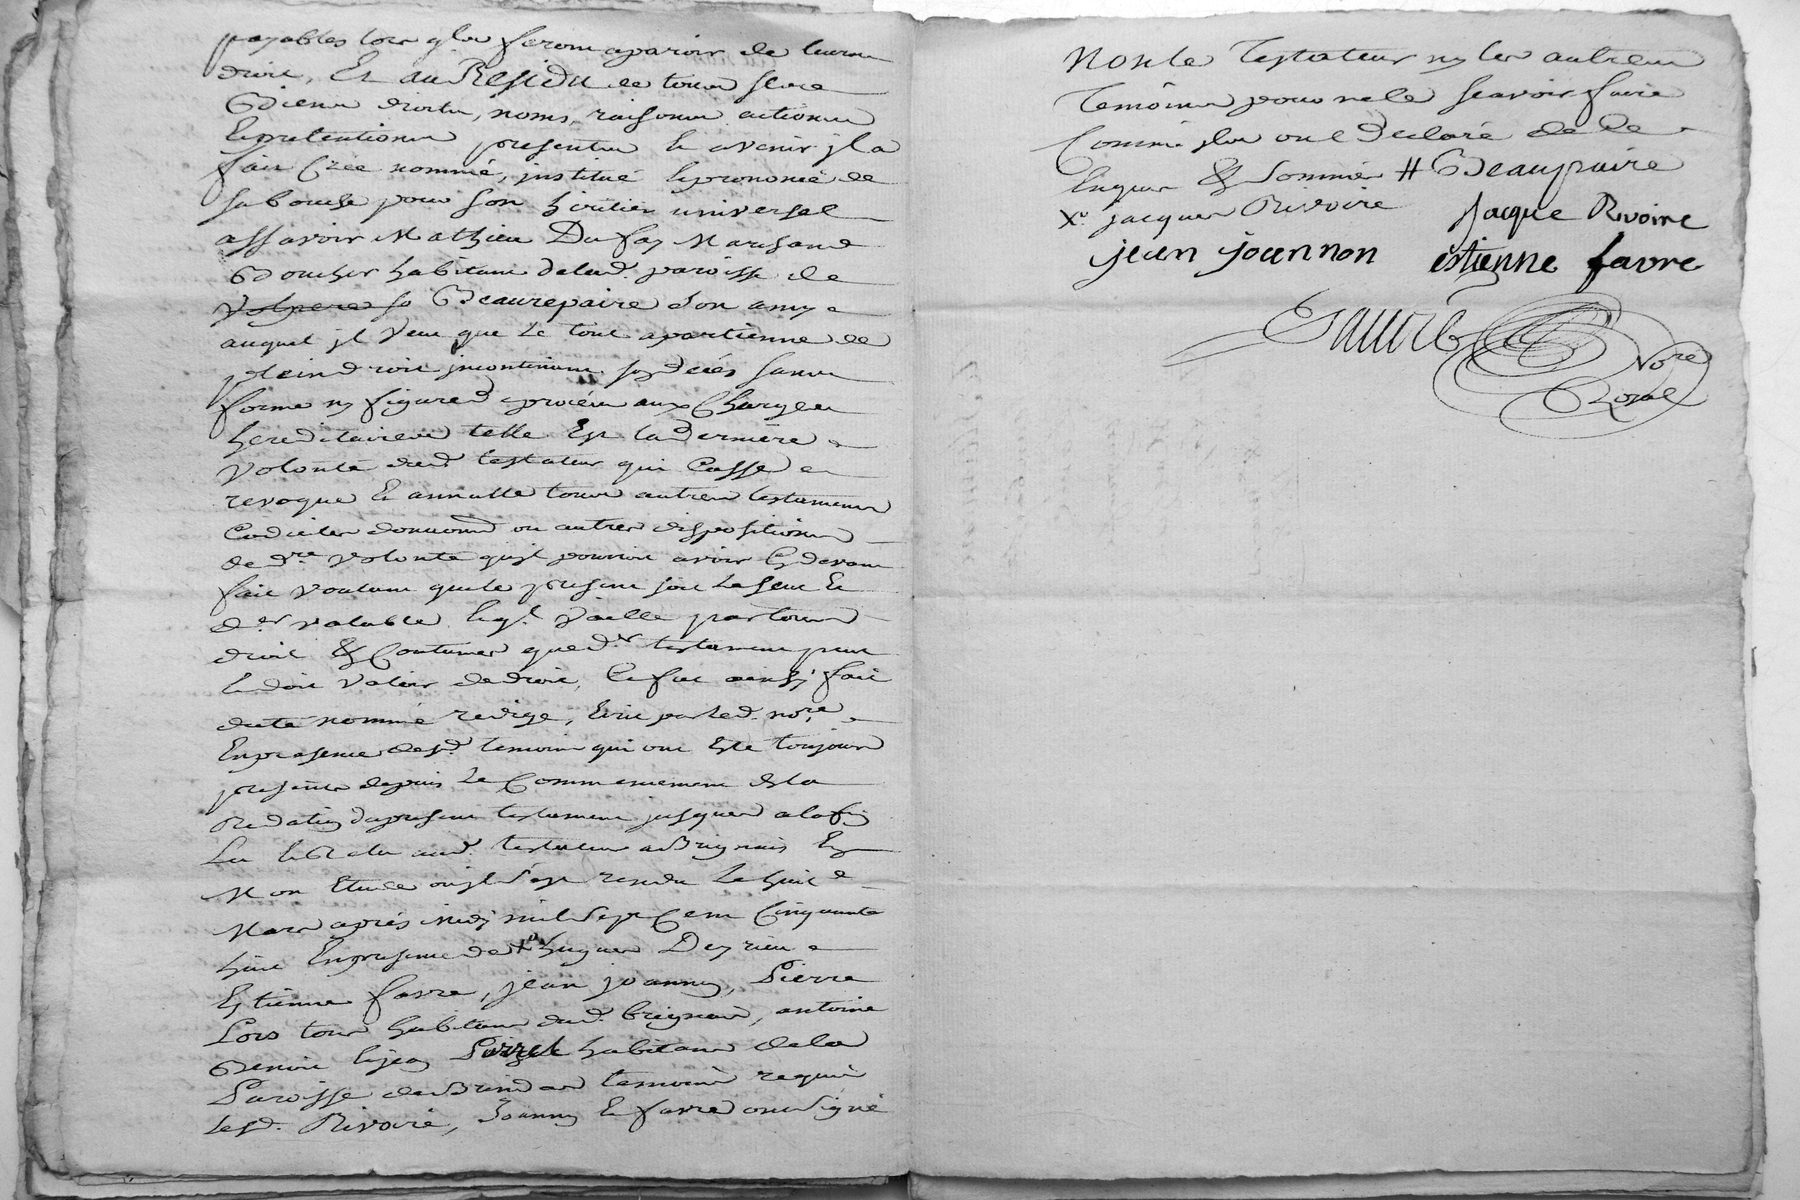 payables lors qlz feront aparoir de leurs
droit, Et au Residu de tous ses
Biens droits, noms, raisons actions
Et pretentions presents & avenir jl a
fait Cree nommé, jnstitué & prononcé de
sa bouche pour son heritier universel
assavoir Mathieu Dufay Marchand
Boucher habitant de lad. paroisse de
Beaurepaire son amy
auquel jl veut que le tout apartienne de
plein droit jncontinant son déces sans
forme ny figure d procés aux Charges
hereditaires telle Est la derniere
volonté dud. testateur qui Casse
revoque & annulle tous autres testaments
Codicilles donnations ou autres dispositions
de dre volonté qujl pourroit avoir Cy devant
fait voulant que le present soit le seul &
der valable & ql vaille par tous
droit & Coutumes que dr testament peut
& doit valoir de droit, Ce fut ainsy fait
dicté nommé redigé, Ecrit par led. nore
En presence desd. temoins qui ont Esté toujours
presents depuis le Commencement de la
Redation du present testament jusques a la fin
Lu & Relu aud. testateur a Brignais En
Mon Etude ou jl s'est rendu le huit
Mars après midy mil sept Cent Cinquante
huit En presence de hugues Deyrieu
Estienne favre, jean joannon, Pierre
Lois tous habitans dud. brignais, antoine
Benoit & jean habitans de la
Paroisse de Brindas temoins requis
lesd. Rivoire, Joannon & favre ont signé
Non le Testateur ny les autres
Temoins pour ne le scavoir faire
Comme jlz ont Declaré de Ce
Enquis & Sommés # Beaurepaire
Xo. jacques Rivoire
Jacque Rivoire
jean joannon estienne favre
Nore
Royal